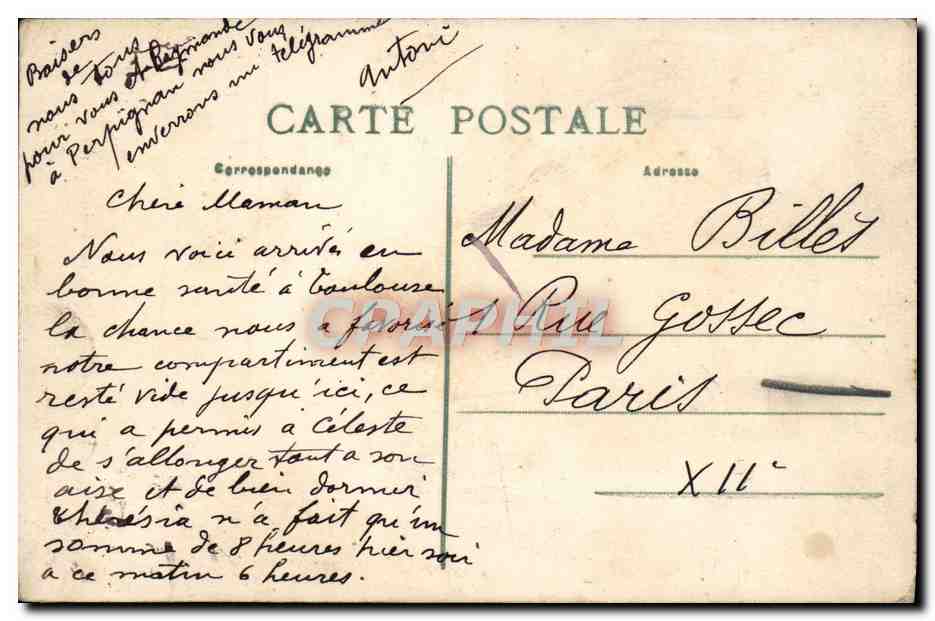 Baisers
de
nous tous
pour vous et Raymonde
à Perpignan nous vous
enverrons un télégramme
Antoni
CARTE POSTALE
Correspondance
Adresse
Chère Maman
Nous voici arrivés en
bonne santé à Toulouse
la chance nous a favorisé
notre compartiment est
resté vide jusqu'ici, ce
qui a permis à Céleste
de s'allonger tout a son
aise et de bien dormir
Thérésia n'a fait qu'un
somme de 8 heures hier soir
a ce matin 6 heures.
Madame Billès
1 Rue Gossec
Paris
XIIe
CPAPHIL